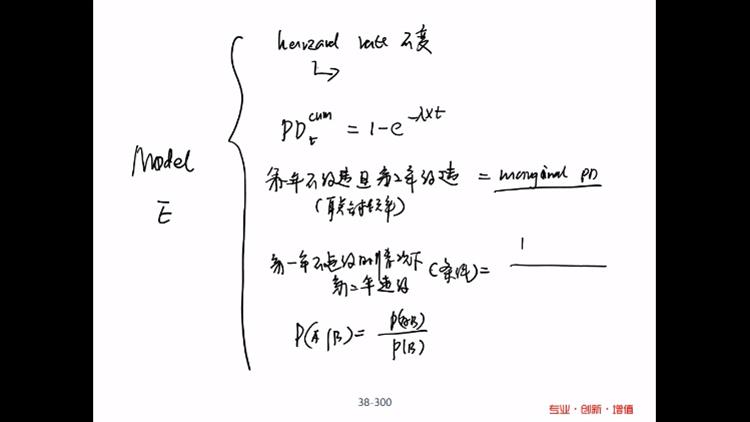 Model
E
hazard rate 不变
PD_t^cum = 1-e^-λxt
第一年不违约且第二年违约 = marginal PD
(联合概率)
第一年不违约的情况下 (条件) =
第二年违约
P(A|B) = P(AB) / P(B)
38-300
专业·创新·增值